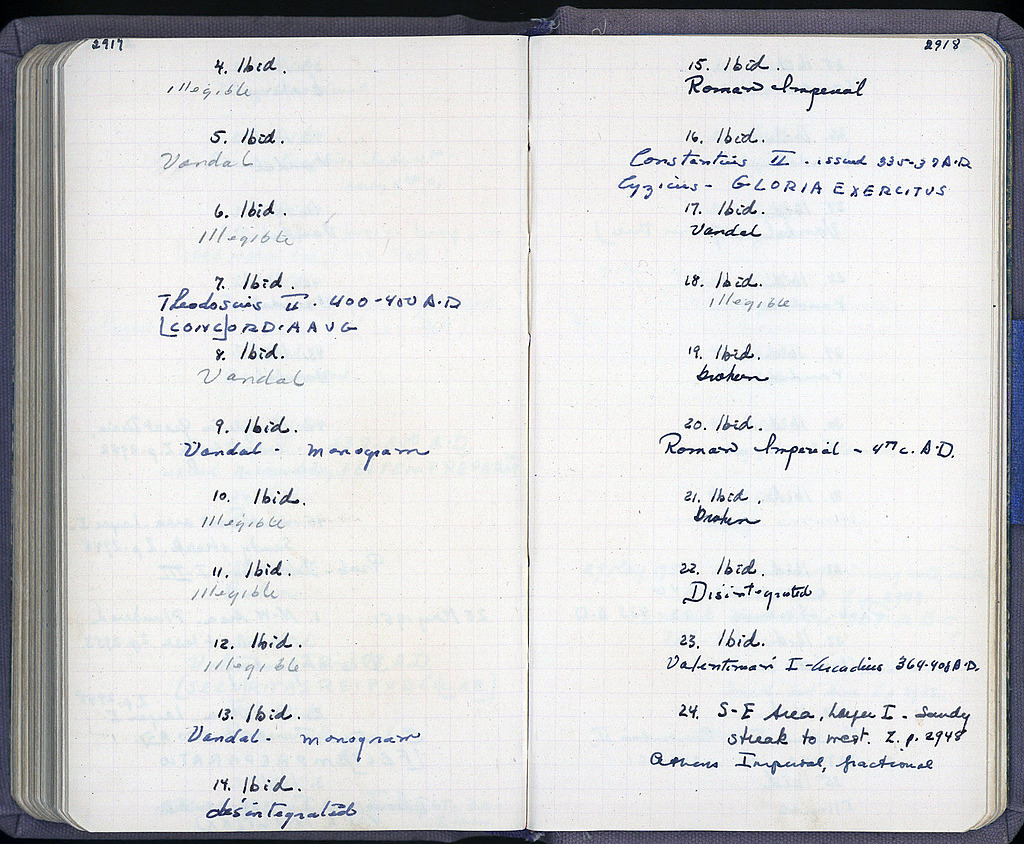 2917
4. Ibid.
illegible
5. Ibid.
Vandal
6. Ibid.
Illegible
7. Ibid.
Theodosius II. 400-450 A.D
[CONC]ORDIA AUG
8. Ibid.
Vandal
9. Ibid.
Vandal - monogram
10. Ibid.
Illegible
11. Ibid.
Illegible
12. Ibid.
Illegible
13. Ibid.
Vandal - monogram
14. Ibid.
disintegrated
2918
15. Ibid.
Roman Imperial
16. Ibid.
Constantius II. issued 335-37 A.D.
Cyzicus - GLORIA EXERCITUS
17. Ibid.
Vandal
18. Ibid.
illegible
19. Ibid.
broken
20. Ibid.
Roman Imperial - 4th c. A.D.
21. Ibid.
broken
22. Ibid.
Disintegrated
23. Ibid.
Valentinian I - Arcadius 364-408 A.D.
24. S-E Area, Layer I - Sandy
streak to west. Z. p. 2948
Athens Imperial, fractional